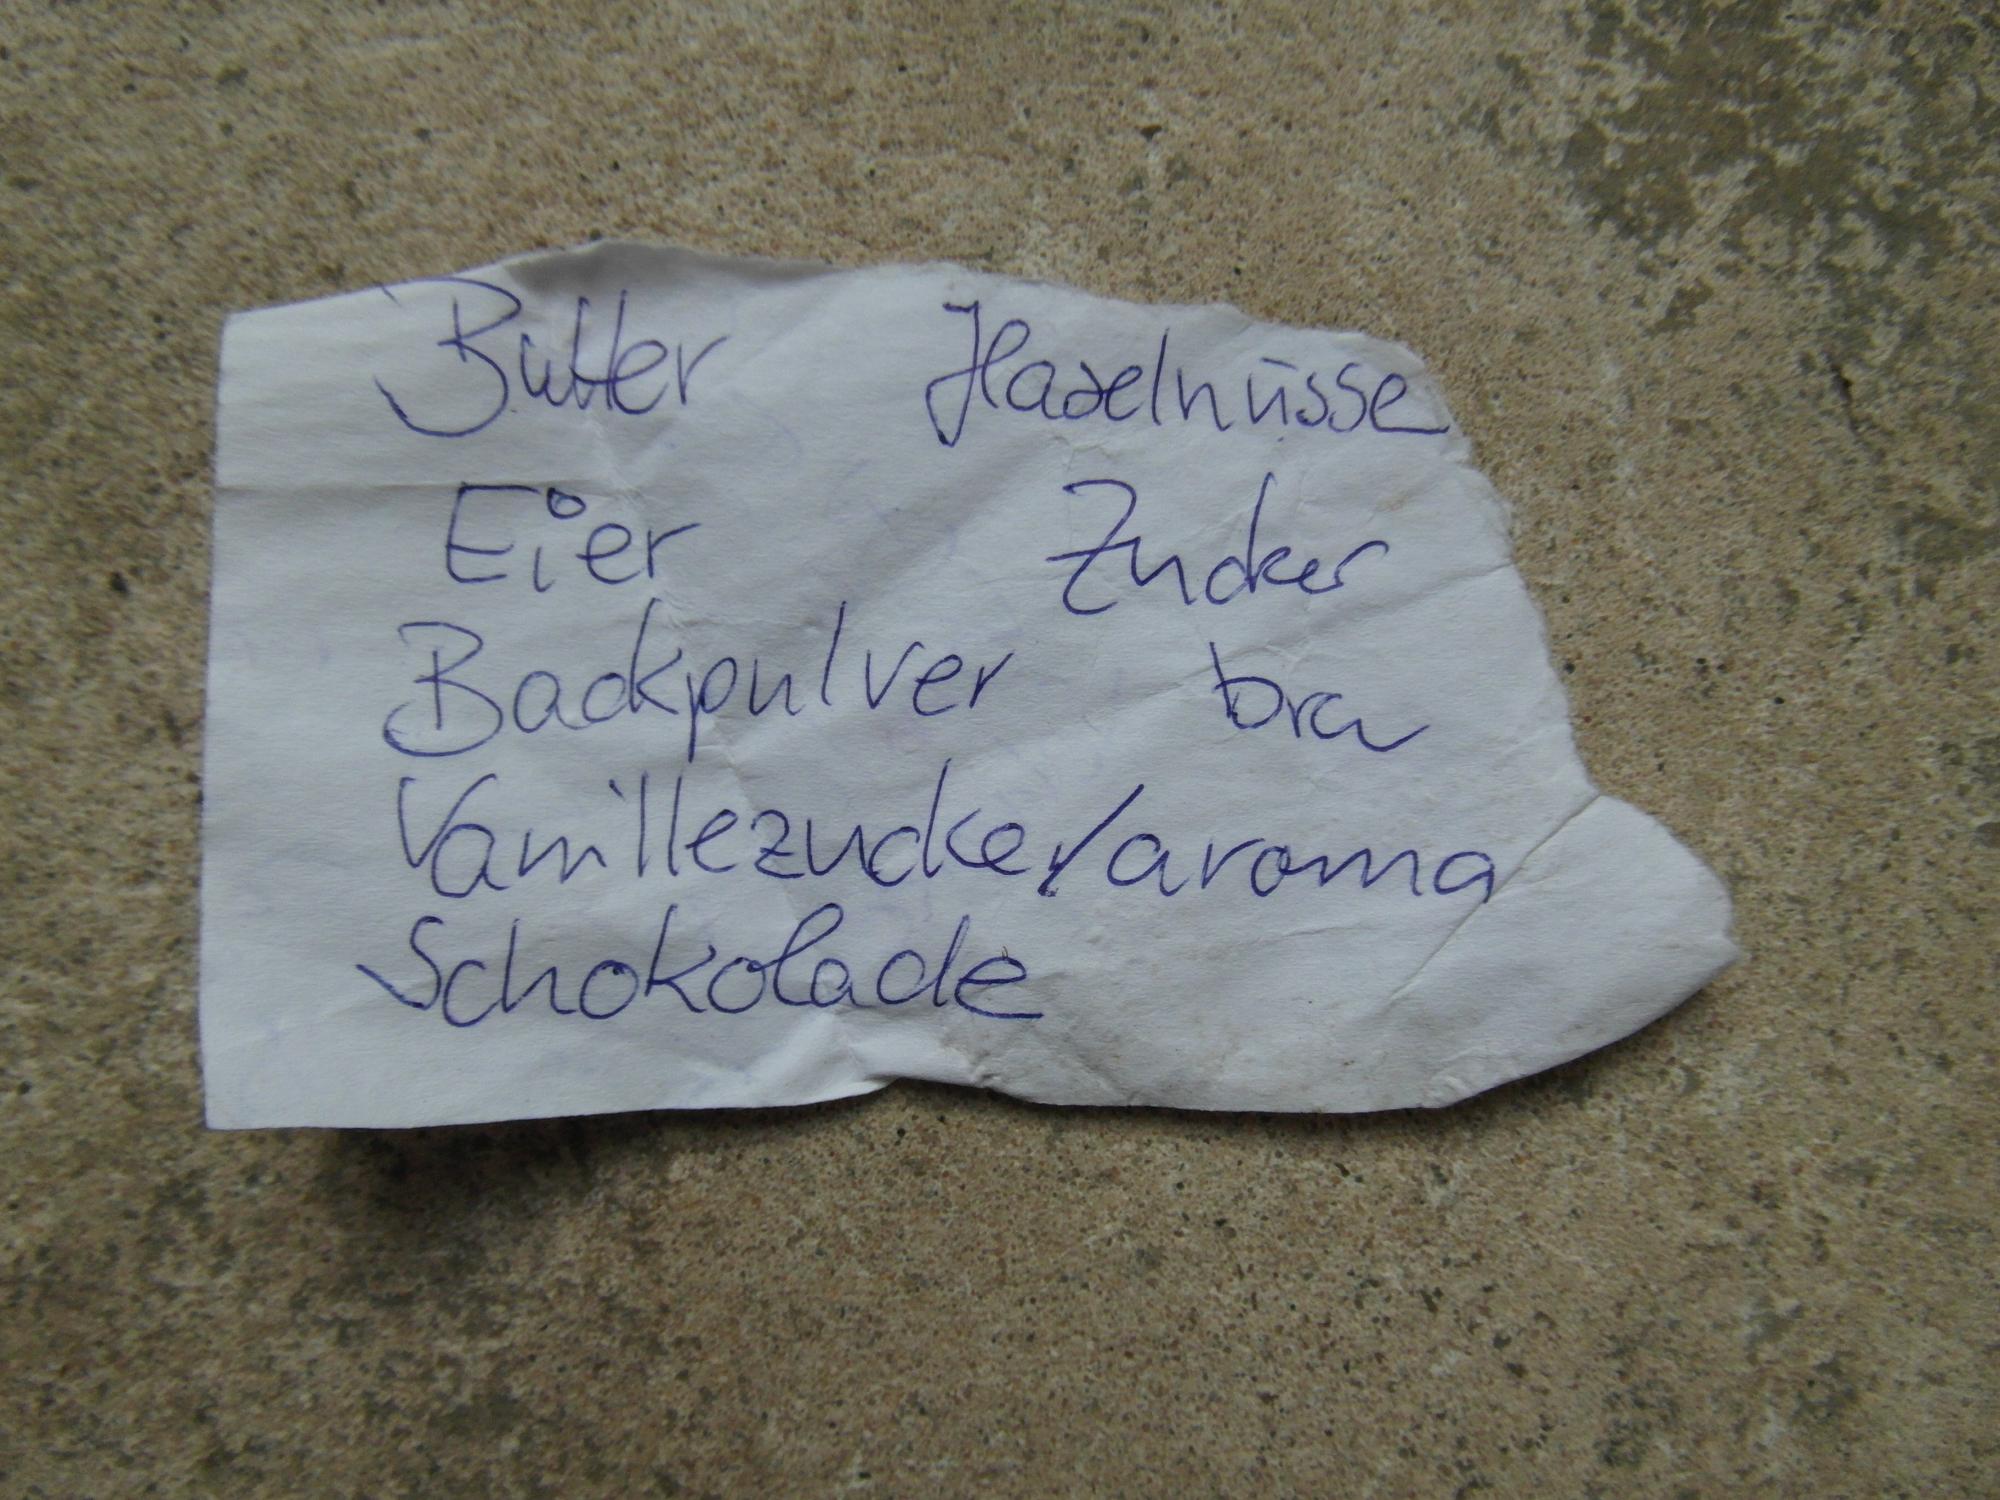 Butter Haselnüsse
Eier Zucker
Backpulver bra
Vanillezucker/aroma
Schokolade